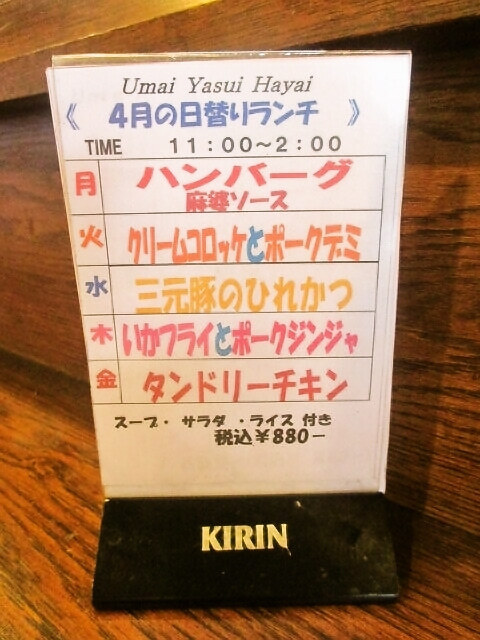 Umai Yasui Hayai
《 4月の日替りランチ 》
TIME 11:00～2:00
月 ハンバーグ
麻婆ソース
火 クリームコロッケとポークデミ
水 三元豚のひれかつ
木 いかフライとポークジンジャ
金 タンドリーチキン
スープ・ サラダ ・ライス 付き
税込¥880－
KIRIN